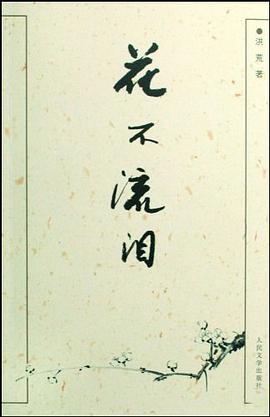 花不流泪
●洪荒 著
人民文学出版社